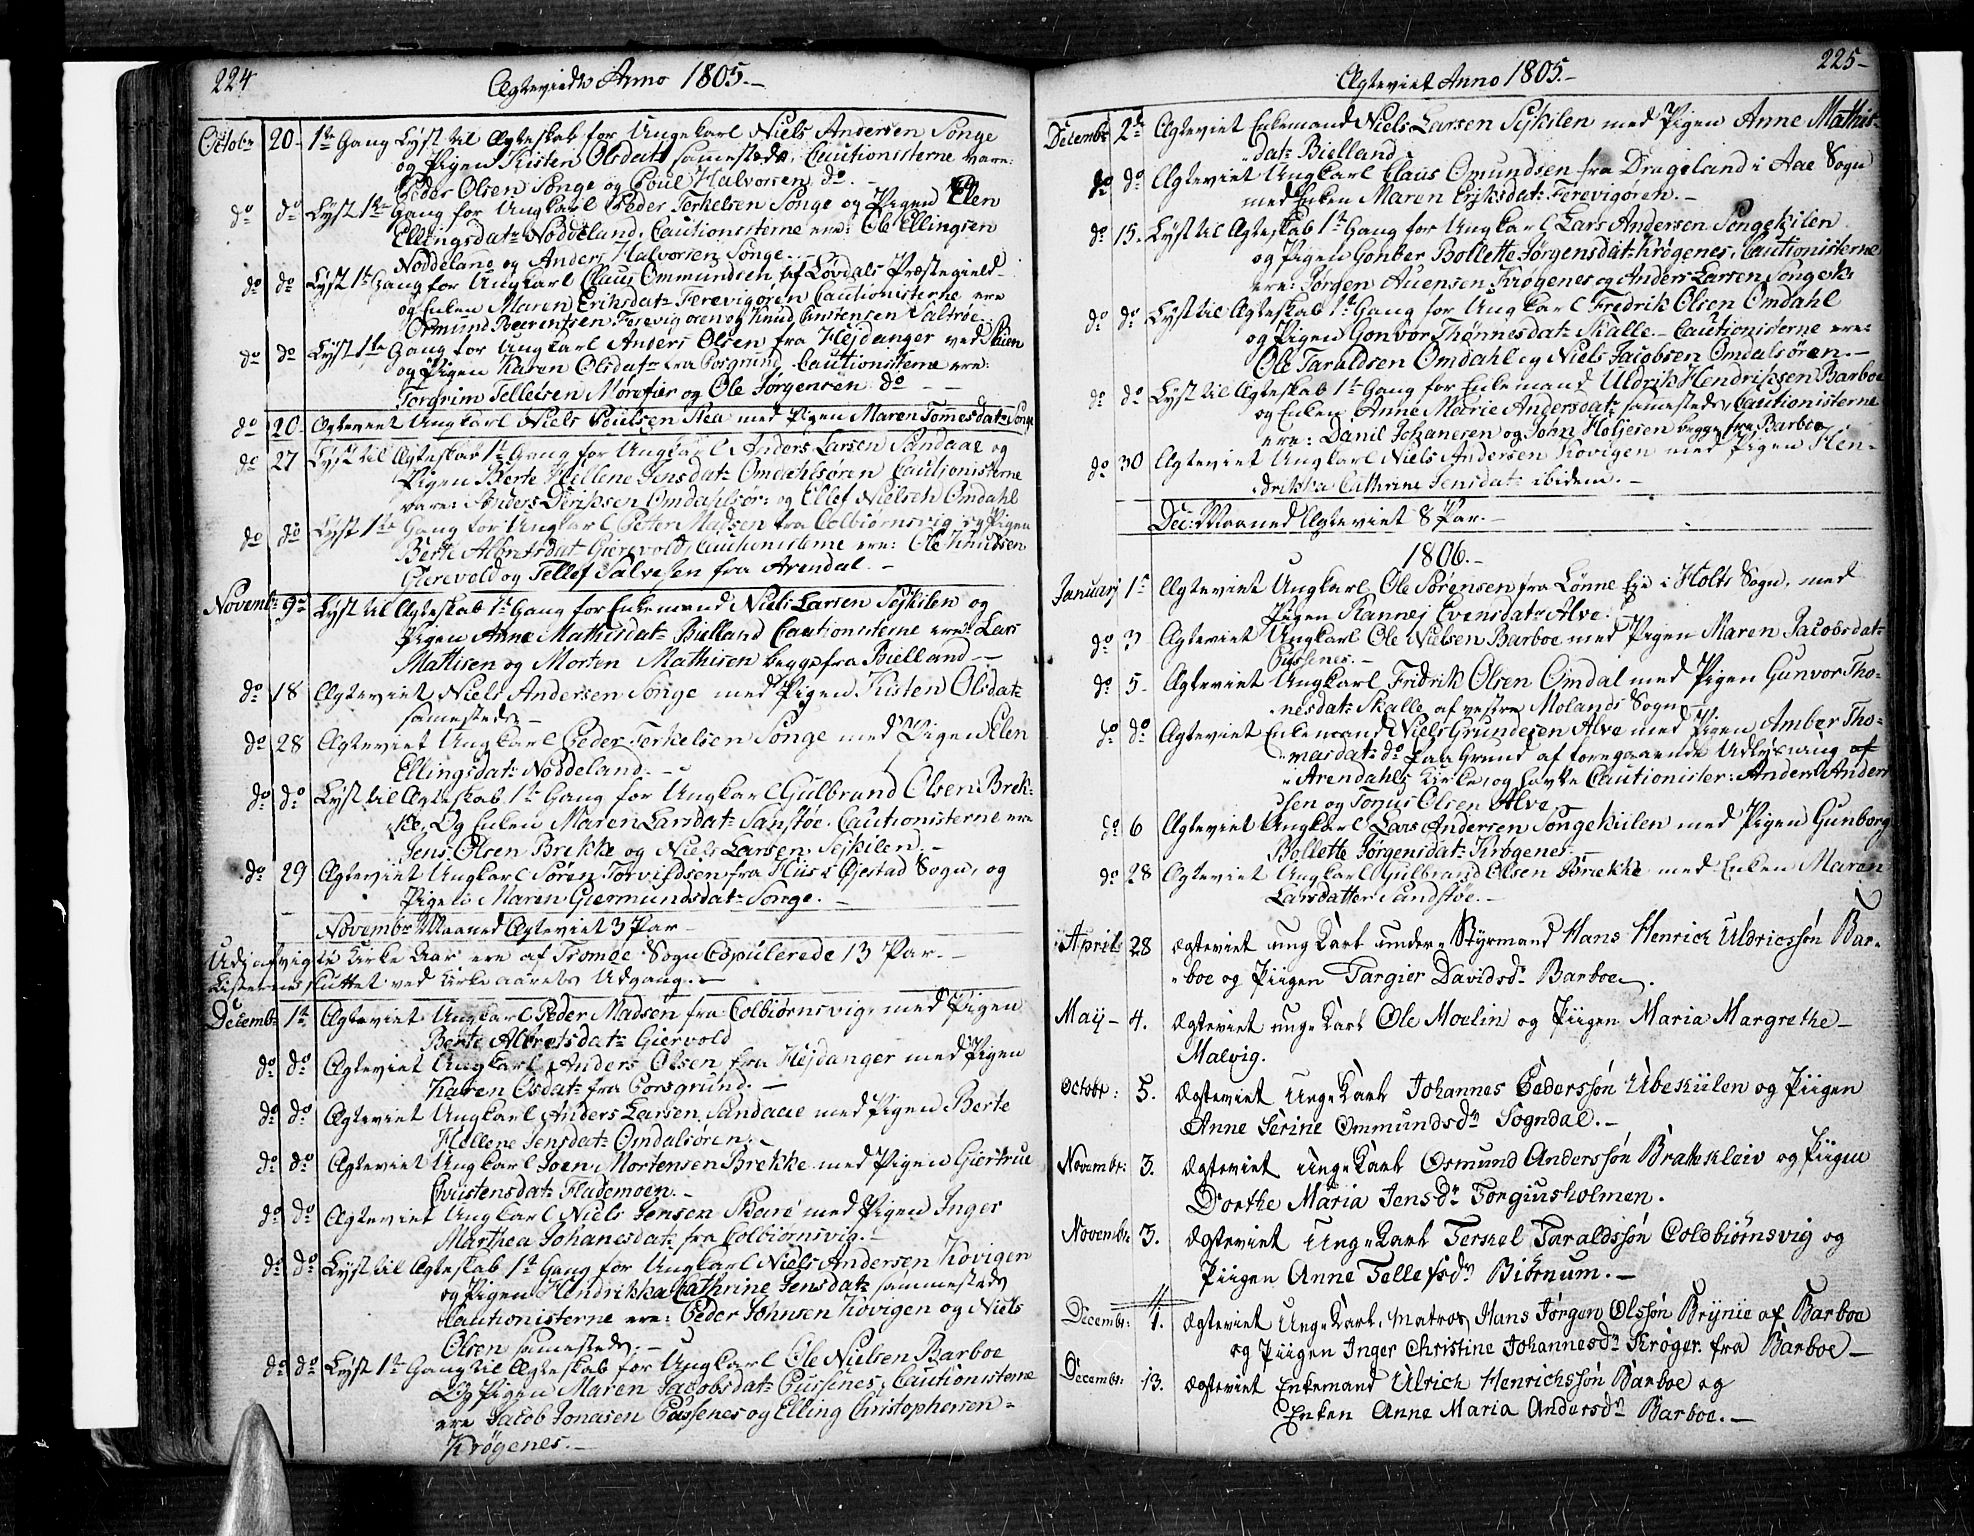 224
Ægteviede Anno 1805.-
Octobr 20. 1te Gang Lyst til Ægteskab for Ungekarl Niels Andersen Songe
og Pigen Kisten Olsdatr samesteds. Cautionisterne vare:
Peder Olsen Songe og Poul Halvorsen do. -
do do Lyst 1te Gang for Ungkarl Peder Terkelsen Songe og Pigen Elen
Ellingsdatr Noddeland. Cautionisterne ere: Ole Ellingsen
Noddeland og Anders Halvorsen Songe.
do do Lyst 1te Gang for Ungkarl Claus Ommundsen af Lovdals Præstegield
og Enken Maren Eriksdatr Ferevigoren Cautionisterne ere
Osmund Beerentsen Ferevigoren og Knud Saltrøe.
do do Lyst 1te Gang for Ungkarl Anders Olsen fra Hejdanger ved Skien
og Pigen Karen Olsdatr fra Porsgrund, Cautionisterne ere:
Torgrim Tellefsen Morefiær og Ole Jørgensen do - -
do 20 Ægteviet Ungkarl Niels Poulsen Thea med Pigen Maren Tomesdatr Songe
do 27 Lyst til Ægteskab 1te Gang for Ungkarl Anders Larsen Sandaae og
Pigen Berte Hellene Jensdatr Omdahlsøren Cautionisterne
vare: Anders Diriksen Omdahlsør: og Ellef Nielsen Omdahl
do do Lyst 1te Gang for Ungkarl Peter Madsen fra Colbiørnsvig og Pigen
Berte Albretsdatr Gierevold, Cautionisterne ere: Ole Knudsen
Gierevold og Tellef Salvesen fra Arendal. -
Novembr 9de Lyst til Ægteskab 1te Gang for Enkemand Niels Larsen Sejkilen og
Pigen Anne Mathisdatr Bielland Cautionisterne ere: Lars
Mathisen og Morten Mathisen begge fra Bielland -
do 18 Ægteviet Niels Andersen Songe med Pigen Kisten Olsdatr
samesteds -
do 28 Ægteviet Ungkarl Peder Terkelsen Songe med Pigen Elen
Ellingsdatr Noddeland. -
do do Lyst til Ægteskab 1te Gang for Ungkarl Gulbrand Olsen Brek-
ke, Og Enken Maren Larsdatr Sanstøe. Cautionisterne ere
Jens Olsen Brekke og Niels Larsen Sejkilen. -
do 29 Ægteviet Ungkarl Søren Torvildsen fra Hiis i Øjestad Sogn, og
Pigen Maren Giermundsdatr Songe. -
Novembr Maaned Ægteviet 3 Par -
Udi afvigte Kirke Aar ere af Tromøe Sogn Copulerede 13 Par. -
Listerne sluttet ved Kirkeaarets Udgang. -
Decembr 1te Ægteviet Ungkarl Peder Madsen fra Colbiørnsvig, med Pigen
Berte Albretsdatr Giervold
do do Ægteviet Ungkarl Anders Olsen fra Hejdanger med Pigen
Karen Osdatr fra Porsgrund. -
do do Ægteviet Ungkarl Anders Larsen Sandaae med Pigen Berte
Hellene Jensdatr Omdalsøren. -
do do Ægteviet Ungkarl Joen Mortensen Brekke med Pigen Giertrue
Cristensdatr Flademoen. -
do do Ægteviet Ungkarl Niels Jensen Skare med Pigen Inger
Marthea Johanesdatr fra Colbiørnsvig. -
do do Lyst til Ægteskab 1te Gang for Ungkarl Niels Andersen Hovigen
og Pigen Hendrikka Cathrine Jensdatr sammesteds
Cautionisterne ere: Peder Johnsen Hovigen og Niels
Olsen samesteds. -
do do Lyst 1te Gang til Ægteskab for Ungkarl Ole Nielsen Barboe
Og Pigen Maren Jacobsdatr Pussenes, Cautionisterne
ere Jacob Jonasen Pussenes og Elling Christophersen -
Krøgenes. -
225-
Ægteviet Anno 1805.-
Decembr 2de Ægteviet Enkemand Niels Larsen Sejkilen med Pigen Anne Mathis-
datr Bielland
do do Ægteviet Ungkarl Claus Omundsen fra Drageland i Aae Sogn
med Enken Maren Eriksdatr Ferevigoren. -
do 15. Lyst til Ægteskab 1te Gang for Ungkarl Lars Andersen Songekilen
og Pigen Gonber Bollette Jørgensdatr Krøgenes, Cautionisterne
ere: Jørgen Auensen Krøgenes og Anders Larsen Songek:
do do Lyst til Ægteskab 1te Gang for Ungkarl Fredrik Olsen Omdahl
og Pigen Gonvor Thønnesdatr Skalle. - Cautionisterne ere:
Ole Taraldsen Omdahl og Niels Jacobsen Omdalsøren. -
do do Lyst til Ægteskab 1te Gang for Enkemand Uldrik Hendriksen Barboe
og Enken Anne Marie Andersdatr samesteds, Cautionisterne
ere: Danil Johanesen og John Holjesen begge fra Barboe
do 30 Ægteviet Ungkarl Niels Andersen Hovigen med Pigen Hen-
drikka Cathrine Jensdatr ibidem. -
Dec: Maaned Ægteviet 8 Par. -
1806. -
Januarj 1te Ægteviet Ungkarl Ole Sørensen fra Lønne Eje i Holts Sogn, med
Pigen Rannej Evensdatr Alve.
do 3 Ægteviet Ungkarl Ole Nielsen Barboe med Pigen Maren Jacobsdatr
Pussenes. -
do 5- Ægteviet Ungkarl Fridrik Olsen Omdal med Pigen Gunvor Tho-
nesdatr Skalle af vestre Molands Sogn -
do do Ægteviet Enkemand Niels Grundesen Alve med Pigen Amber Tho-
masdatr do paa Grund af foregaaende Udlysning af
i Arendahls Kirke, og havte Cautionister: Anders Ander
sen og Tonius Olsen Alve. -
do 6 Ægteviet Ungkarl Lars Andersen Songekiilen med Pigen Gunborg
Bollette Jørgensdatr Krøgenes. -
do 28 Ægteviet Ungkarl Gulbrand Olsen Brække med Enken Maren
Larsdatter Sandstøe. -
April 28 Ægteviet ung Karl under-Styrmand Hans Henrich Uldricssón Bar-
boe og Piigen Targier Davidsdr Barboe.
Maij - 4. Ægteviet unge Karl Ole Moelin og Piigen Maria Margrethe -
Malvig.
Octobr: 5. Ægteviet Unge Karl Johannes Pederssón Ubekiilen og Piigen
Anne Serine Ommundsdr Sogndal. -
Novembr: 3. Ægteviet Unge Karl Osmund Anderssón Brattekleiv og Piigen
Dorthe Maria Jensdr Torgiusholmen.
Novembr: 3. Ægteviet Unge Karl Terkel Taraldssón Coldbiørnsvig og
Piigen Anne Tellefsdr Biørnum. -
Decembr: 4. Ægteviet Unge Karl, Matros Hans Jørgen Olssón Brynie af Barboe
og Piigen Inger Christine Johannesdr Krøger fra Barboe -
Decembr: 13. Ægteviet Enkemand Ulrich Henrichssón Barboe og
Enken Anne Maria Andersdr Barboe. -